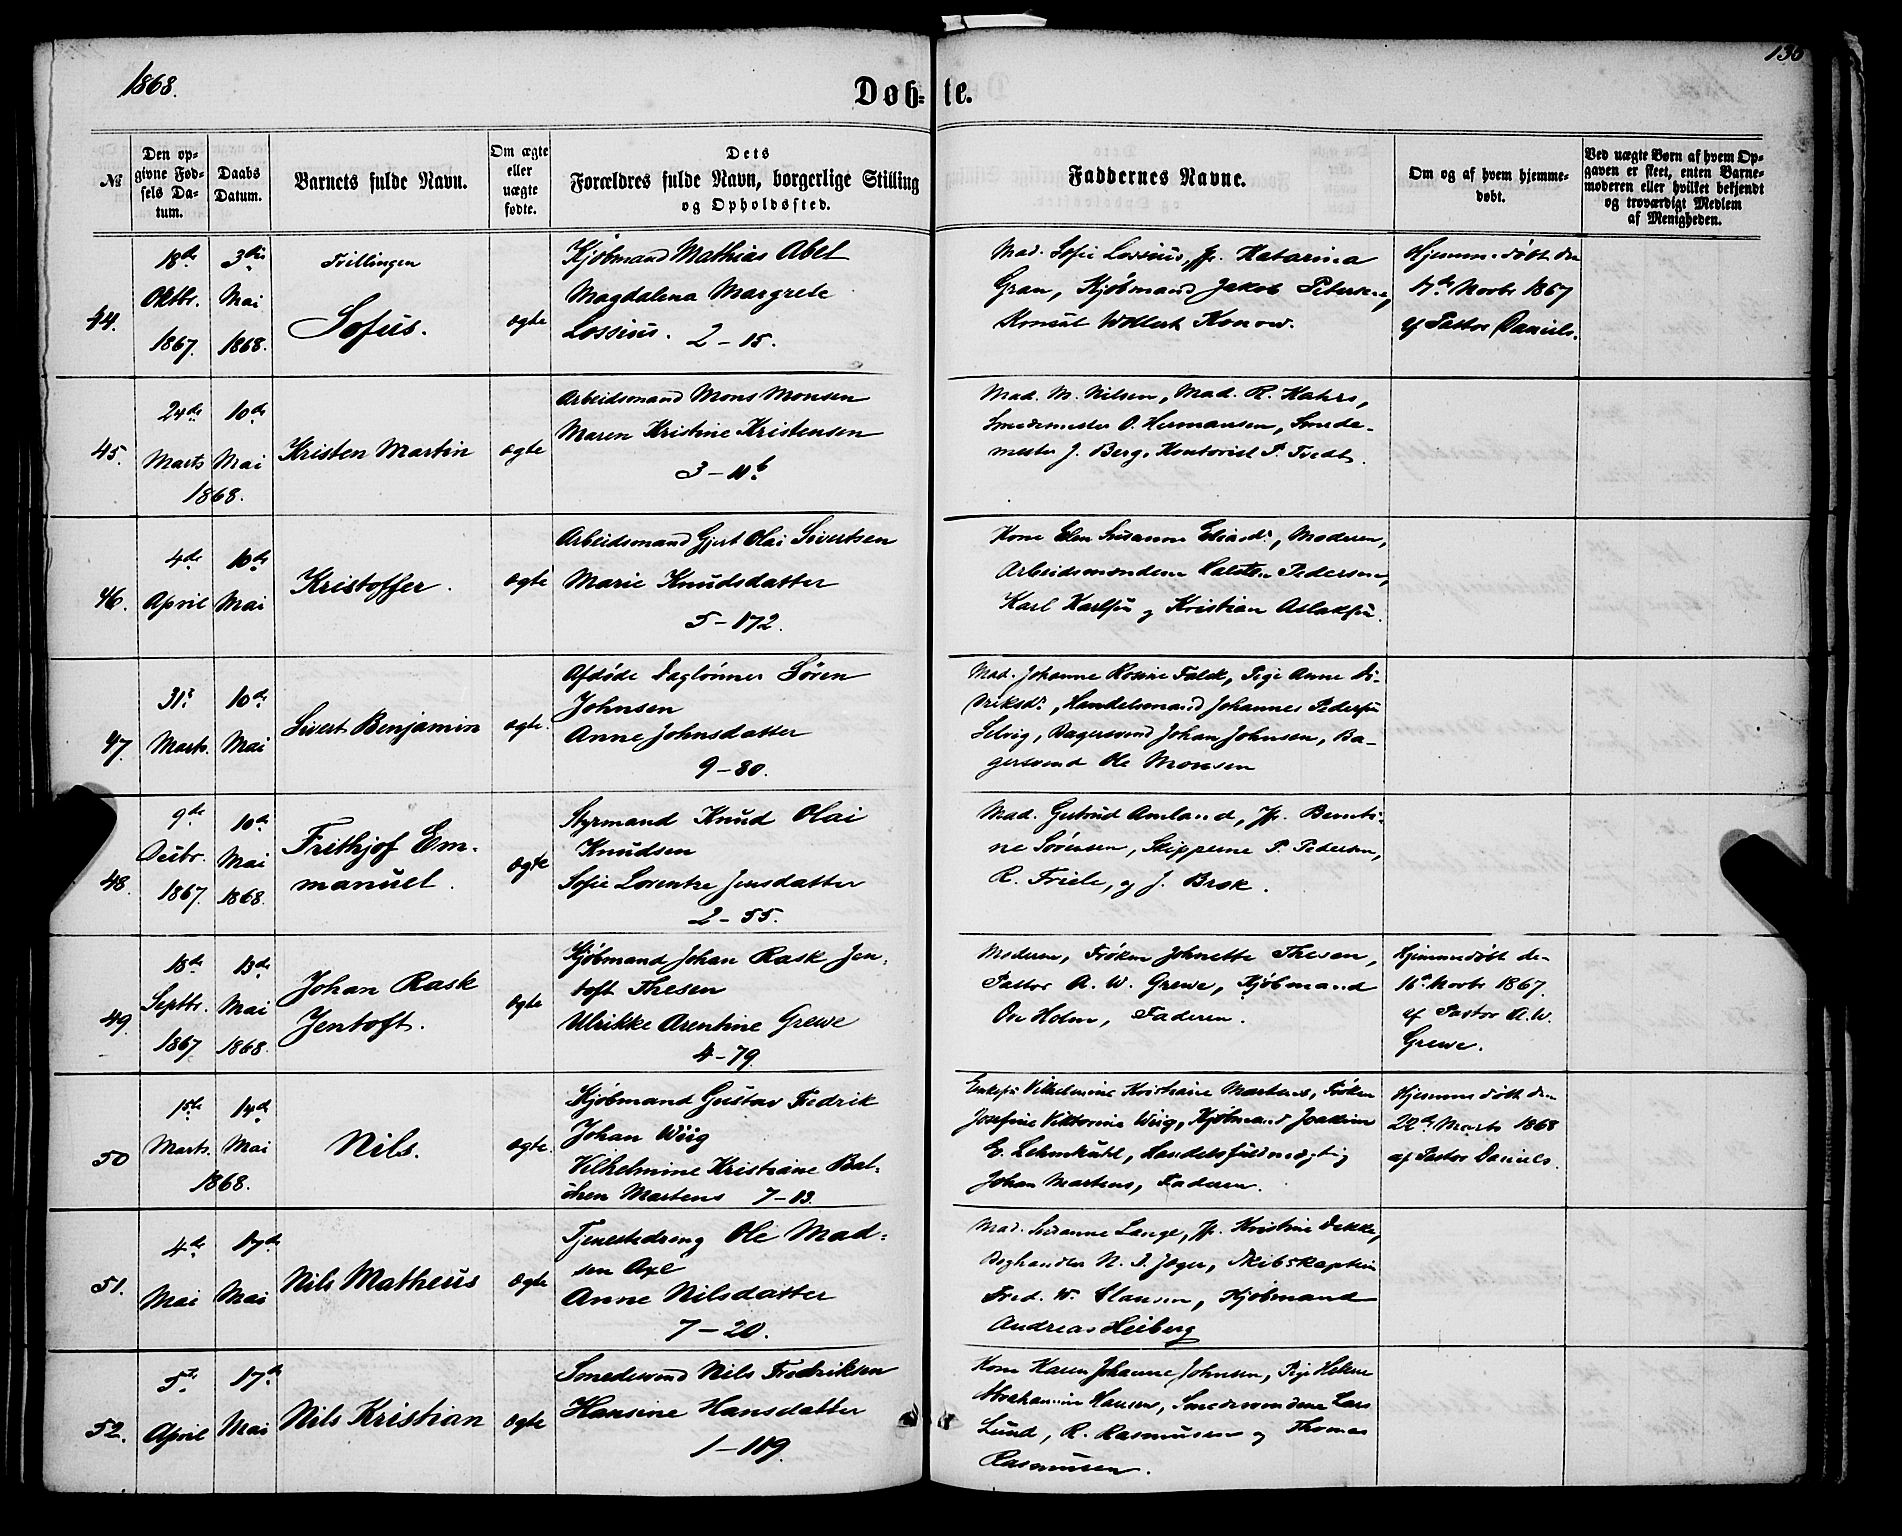 1868.
Døb-te.
130
№
Den op-
givne Fød-
sels Da-
tum.
Daabs
Datum.
Barnets fulde Navn.
Om ægte
eller
uægte
fødte.
Dets
Forældres fulde Navn, borgerlige Stilling
og Opholdssted.
Faddernes Navne.
Om og af hvem hjemme-
døbt.
Ved uægte Børn af hvem Op-
gaven er skeet, enten Barne-
moderen eller hvilket bekjendt
og troværdigt Medlem
af Menigheden.
44.
18de
Oktbr.
1867.
3die
Mai
1868.
Tvillingen
Sofus.
ægte
Kjøbmand Mathias Abel
Magdalena Margrete
Lossius. 2-15.
Mad. Sofie Lossius, Jfr. Katarina
Gran, Kjøbmand Jakob Petersen,
Konsul Wollert Konow.
Hjemmedøbt den
17de Novbr 1867
af Pastor Daniels.
45.
24de
Marts
10de
Mai
1868.
Kristen Martin
ægte
Arbeidsmand Mons Monsen
Maren Kristine Kristensen
3-11b
Mad. M. Nilsen, Mad. R. Hahrs,
Smedemester O. Hermansen, Smede-
mester J. Berg, Kontorist P. Tvedt.
46.
4de
April
10de
Mai
Kristoffer.
ægte
Arbeidsmand Gjert Olai Sivertsen
Marie Knudsdatter
5-172.
Kone Elen Susanne Eliasdr, Moderen,
Arbeidsmændene Halsten Pedersen,
Karl Karlsen og Kristian Aslaksen.
47.
31s
Marts.
10de
Mai
Sivert Benjamin
ægte.
Afdøde Daglønner Søren
Johnsen
Anne Johnsdatter
9-80.
Mad. Johanne Rosine Falck, Pige Anne Di-
driksdr, Handelsmand Johannes Pedersen
Selvig, Bagersvend Johan Johnsen, Ba-
gersvend Ole Monsen
48.
9de
Decbr.
1867.
10de
Mai
1868.
Frithjof Em-
manuel.
ægte
Styrmand Knud Olai
Knudsen
Sofie Lorentze Jensdatter
2-55.
Mad. Gertrud Amland, Jfr. Bernti-
ne Sørensen, Skipperne P. Pedersen,
R. Friele, og J. Brok.
49.
18de
Septbr.
1867
13de
Mai
1868.
Johan Rask
Jentoft.
ægte
Kjøbmand Johan Rask Jen-
toft Thesen
Ulrikke Arentine Grewe
4-79.
Moderen, Frøken Johnette Thesen,
Pastor A. W. Grewe, Kjøbmand
Ole Holm, Faderen.
Hjemmedøbt de-
16de Novbr 1867.
af Pastor A.W.
Grewe.
50
15de
Marts.
14de
Mai
1868.
Nils.
ægte.
Kjøbmand Gustav Fredrik
Johan Wiig
Vilhelmine Kristiane Bal-
chen Martens 7-13.
Enkefru Vilhelmine Kristiane Martens, Frøken
Josefine Viktorine Wiig, Kjøbmand Joakim
E. Lehmkuhl, Handelsfuldmægtig
Johan Martens, Faderen.
Hjemmedøbt den
22de Marts 1868
af Pastor Daniels.
51.
4de
Mai
17de
Mai
Nils Matheus
ægte
Tjenestedreng Ole Mad-
sen Axe
Anne Nilsdatter
7-20.
Mad. Susanne Lange, Jfr. Kristine Dekke,
Boghandler N. J. Jæger, Skibskaptein
Fred. W. Clausen, Kjøbmand
Andreas Heiberg
52.
5te
April
17de
Mai
Nils Kristian
ægte
Smedesvend Nils Fredriksen
Hansine Hansdatter
1-119.
Kone Karen Johanne Johnsen, Pige Helene
Abrahamine Hansen, Smedesvendene Lars
Lund, R. Rasmussen og Thomas
Rasmussen.